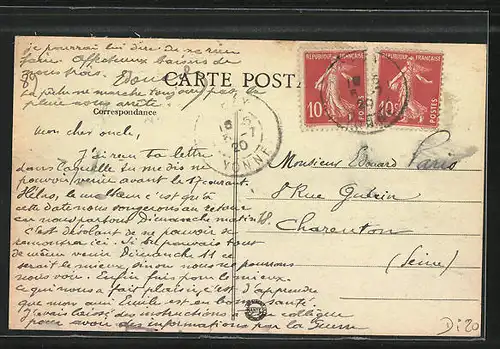 je pourrai lui dire de ne rien
faire. Affectueux baisers de
nous trois. Edouard
La pêche marche toujours pas, la
pluie nous arrête.
CARTE POSTA
Correspondance
REPUBLIQUE FRANÇAISE
10c
POSTES
REPUBLIQUE FRANÇAISE
10c
POSTES
YONNE
Mon cher oncle,
J'ai reçu ta lettre
dans laquelle tu me dis ne
pouvoir venir avant le courant.
Hélas, le malheur c'est qu'à
cette date nous songerons au retour
car nous partons Dimanche matin 18.
C'est désolant de ne pouvoir se
rencontrer ici. Si tu pouvais tout
de même venir Dimanche 11 ce
serait le mieux, sinon nous ne pourrons
nous voir. Enfin fais pour le mieux.
Ce qui nous a fait plaisir, c'est d'apprendre
que mon ami Emile est en bonne santé.
J'avais laissé des instructions à un collègue
pour avoir des informations par la
Monsieur Edouard Paris
8 Rue
Charenton
(Seine)
Di 20